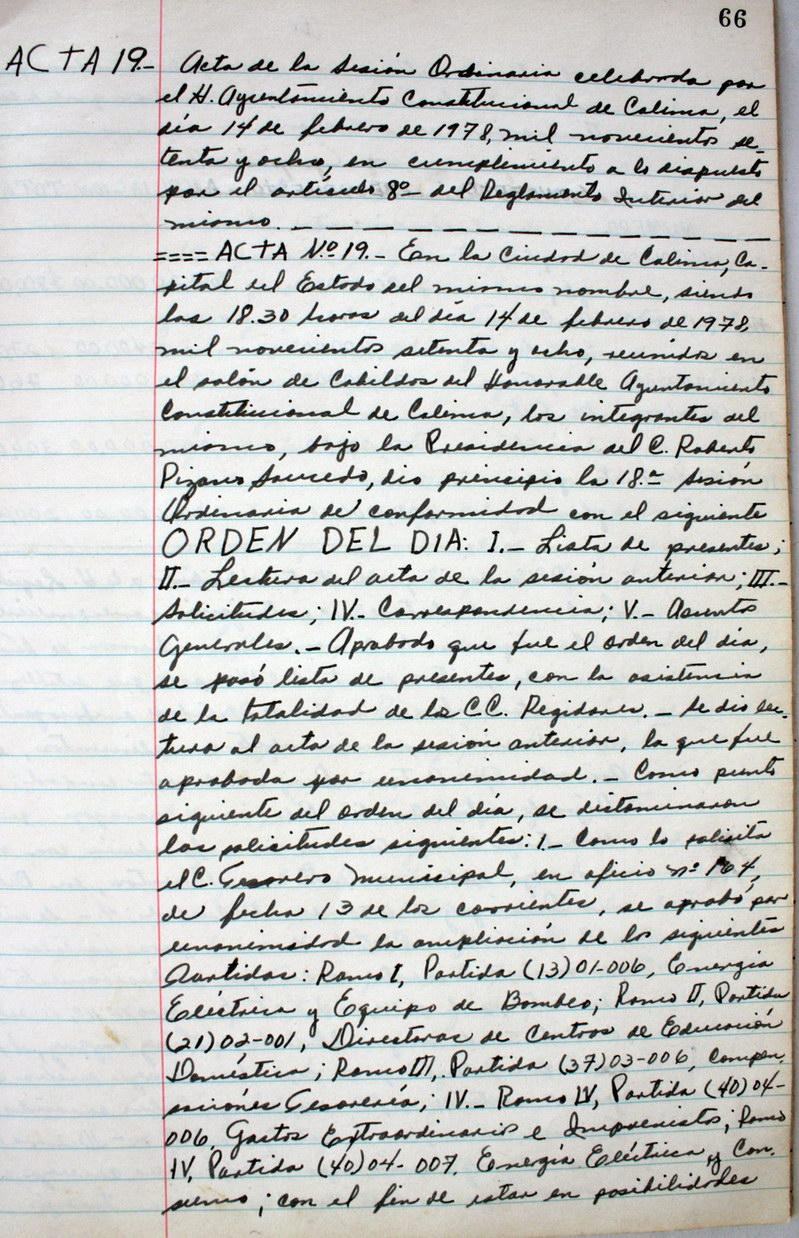 66
ACTA 19.- Acta de la Sesión Ordinaria celebrada por
el H. Ayuntamiento Constitucional de Colima, el
día 14 de febrero de 1978, mil novecientos se-
tenta y ocho, en cumplimiento a lo dispuesto
por el artículo 8º del Reglamento Interior del
mismo. _ _ _ _ _ _ _ _ _ _ _ _ _ _
==== ACTA Nº 19.- En la Ciudad de Colima, Ca-
pital del Estado del mismo nombre, siendo
las 18.30 horas del día 14 de febrero de 1978,
mil novecientos setenta y ocho, reunidos en
el salón de Cabildos del Honorable Ayuntamiento
Constitucional de Colima, los integrantes del
mismo, bajo la Presidencia del C. Roberto
Pizano Saucedo, dio principio la 18.a Sesión
Ordinaria de conformidad con el siguiente
ORDEN DEL DIA: I.- Lista de presentes;
II.- Lectura del acta de la sesión anterior; III.-
Solicitudes; IV.- Correspondencia; V.- Asuntos
Generales.- Aprobado que fue el orden del día,
se pasó lista de presentes, con la asistencia
de la totalidad de los C.C. Regidores.- Se dio lec-
tura al acta de la sesión anterior, la que fue
aprobada por unanimidad.- Como punto
siguiente del orden del día, se dictaminaron
las solicitudes siguientes: 1.- Como lo solicita
el C. Tesorero Municipal, en oficio nº 164,
de fecha 13 de los corrientes, se aprobó por
unanimidad la ampliación de las siguientes
Partidas: Ramo I, Partida (13)01-006, Energía
Eléctrica y Equipo de Bombeo; Ramo II, Partida
(21)02-001, Directoras de Centros de Educación
Doméstica; Ramo III, Partida (37)03-006, Compen-
saciones Tesorería; IV.- Ramo IV, Partida (40)04-
006, Gastos Extraordinarios e Imprevistos; Ramo
IV, Partida (40)04-007, Energía Eléctrica y Con-
sumo; con el fin de estar en posibilidades